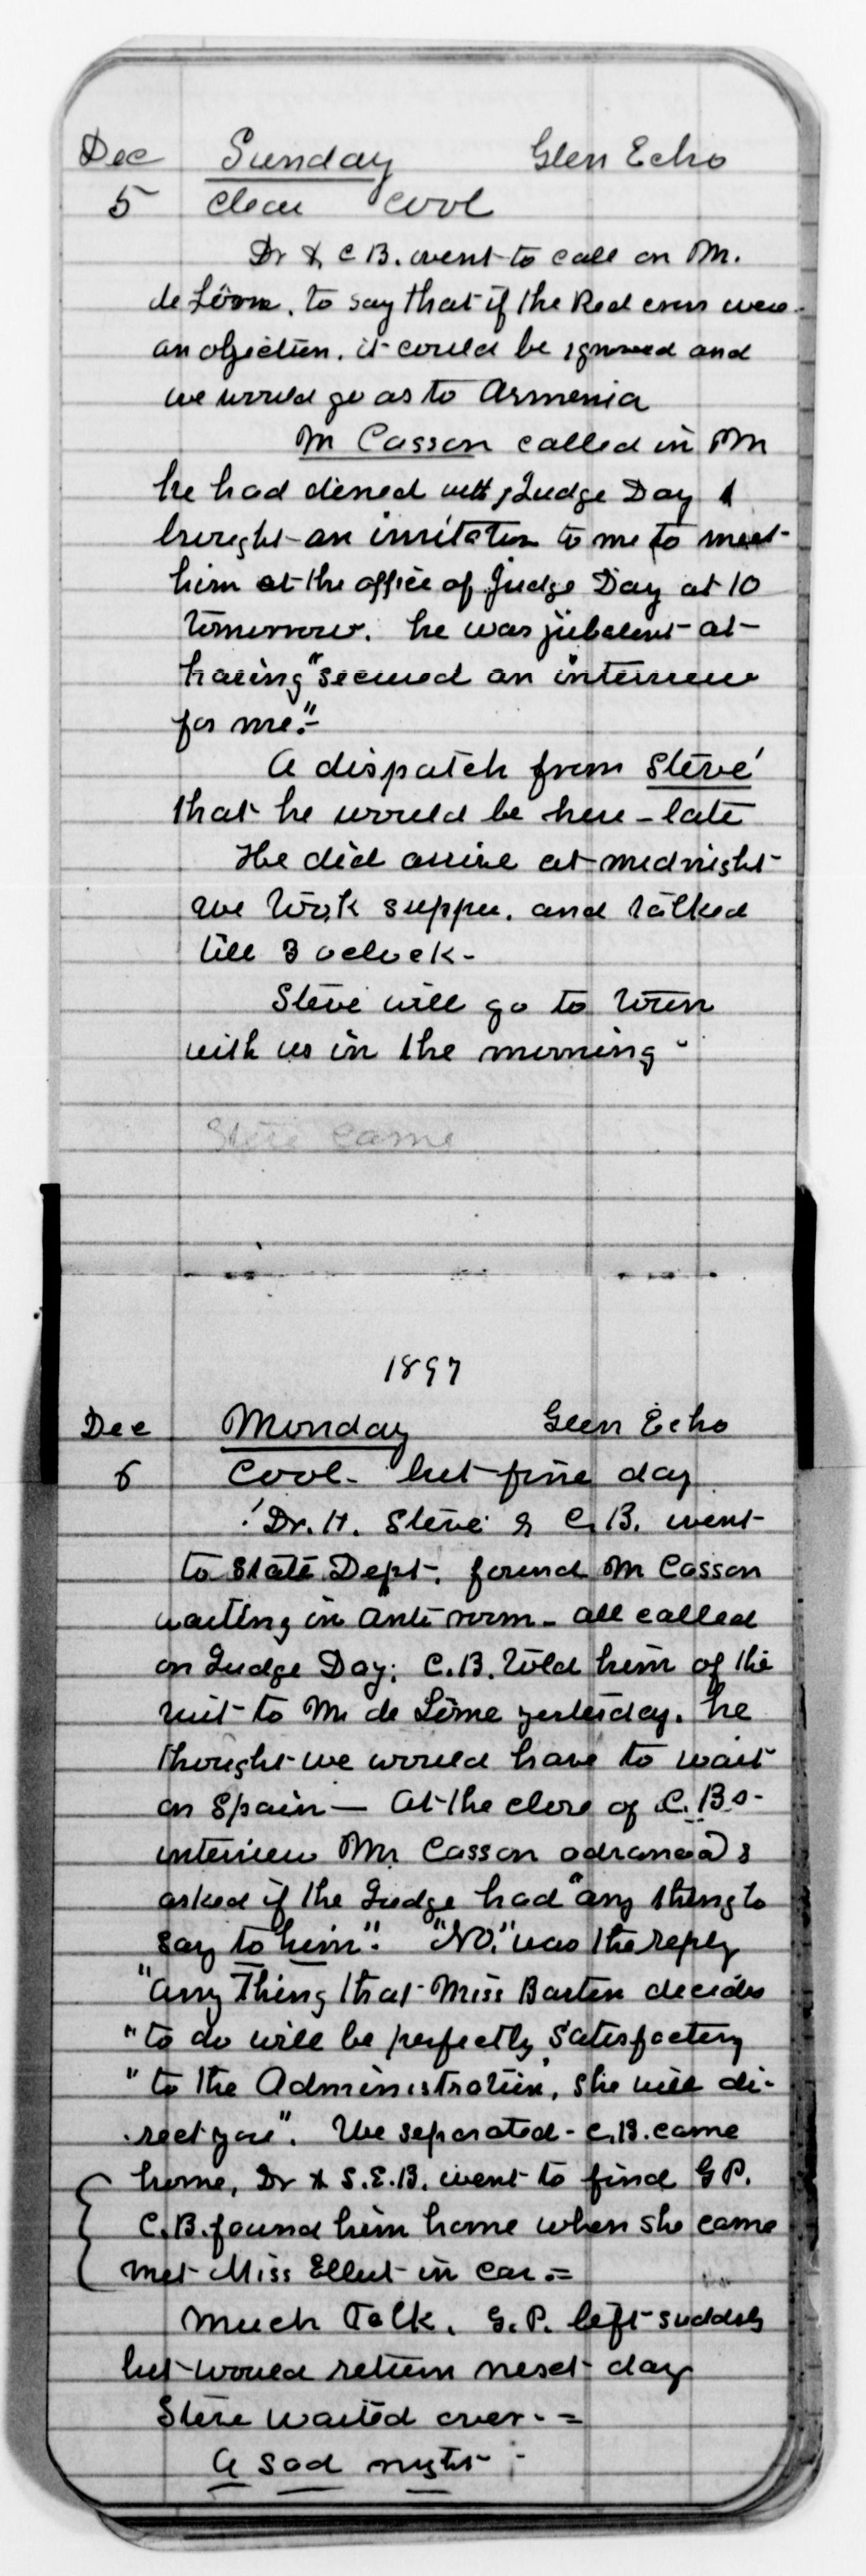 Dec Sunday Glen Echo
5 Clear Cool
Dr & C B. went to call on M.
de Lôme, to say that if the Red cross were
an objection, it could be ignored and
we would go as to Armenia
Mr Casson called in PM
he had dined with Judge Day &
brought an invitation to me to meet
him at the office of Judge Day at 10
tomorrow. he was jubilent at
having "secured an interview
for me."-
A dispatch from Steve
that he would be here - late
He did arrive at midnight
We took supper, and talked
till 3 oclock -
Steve will go to town
with us in the morning -
Steve came
1897
Dec Monday Glen Echo
6 Cool - but fine day
Dr. H. Steve & C. B. went
to State Dept, found Mr Casson
waiting in Ante room - all called
on Judge Day; C. B. told him of the
visit to Mr de Lôme yesterday. he
thought we would have to wait
on Spain — At the close of C. Bs -
interview Mr Casson advanced &
asked if the Judge had "any thing to
say to him". "No." was the reply
"Any Thing that Miss Barton decides
"to do will be perfectly satisfactory
"to the Administration, she will di-
rect you". We separated - C. B. came
home, Dr & S. E. B. went to find G P.
C. B. found him home when she came
met Miss in car. =
Much Talk. G. P. left suddly
but would return next day
Steve waited over - =
A sad night -